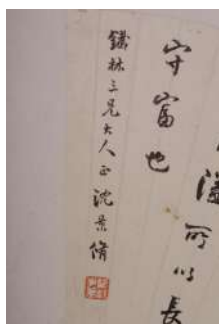 溢所以長
守富也
林三兄大人正沈景脩